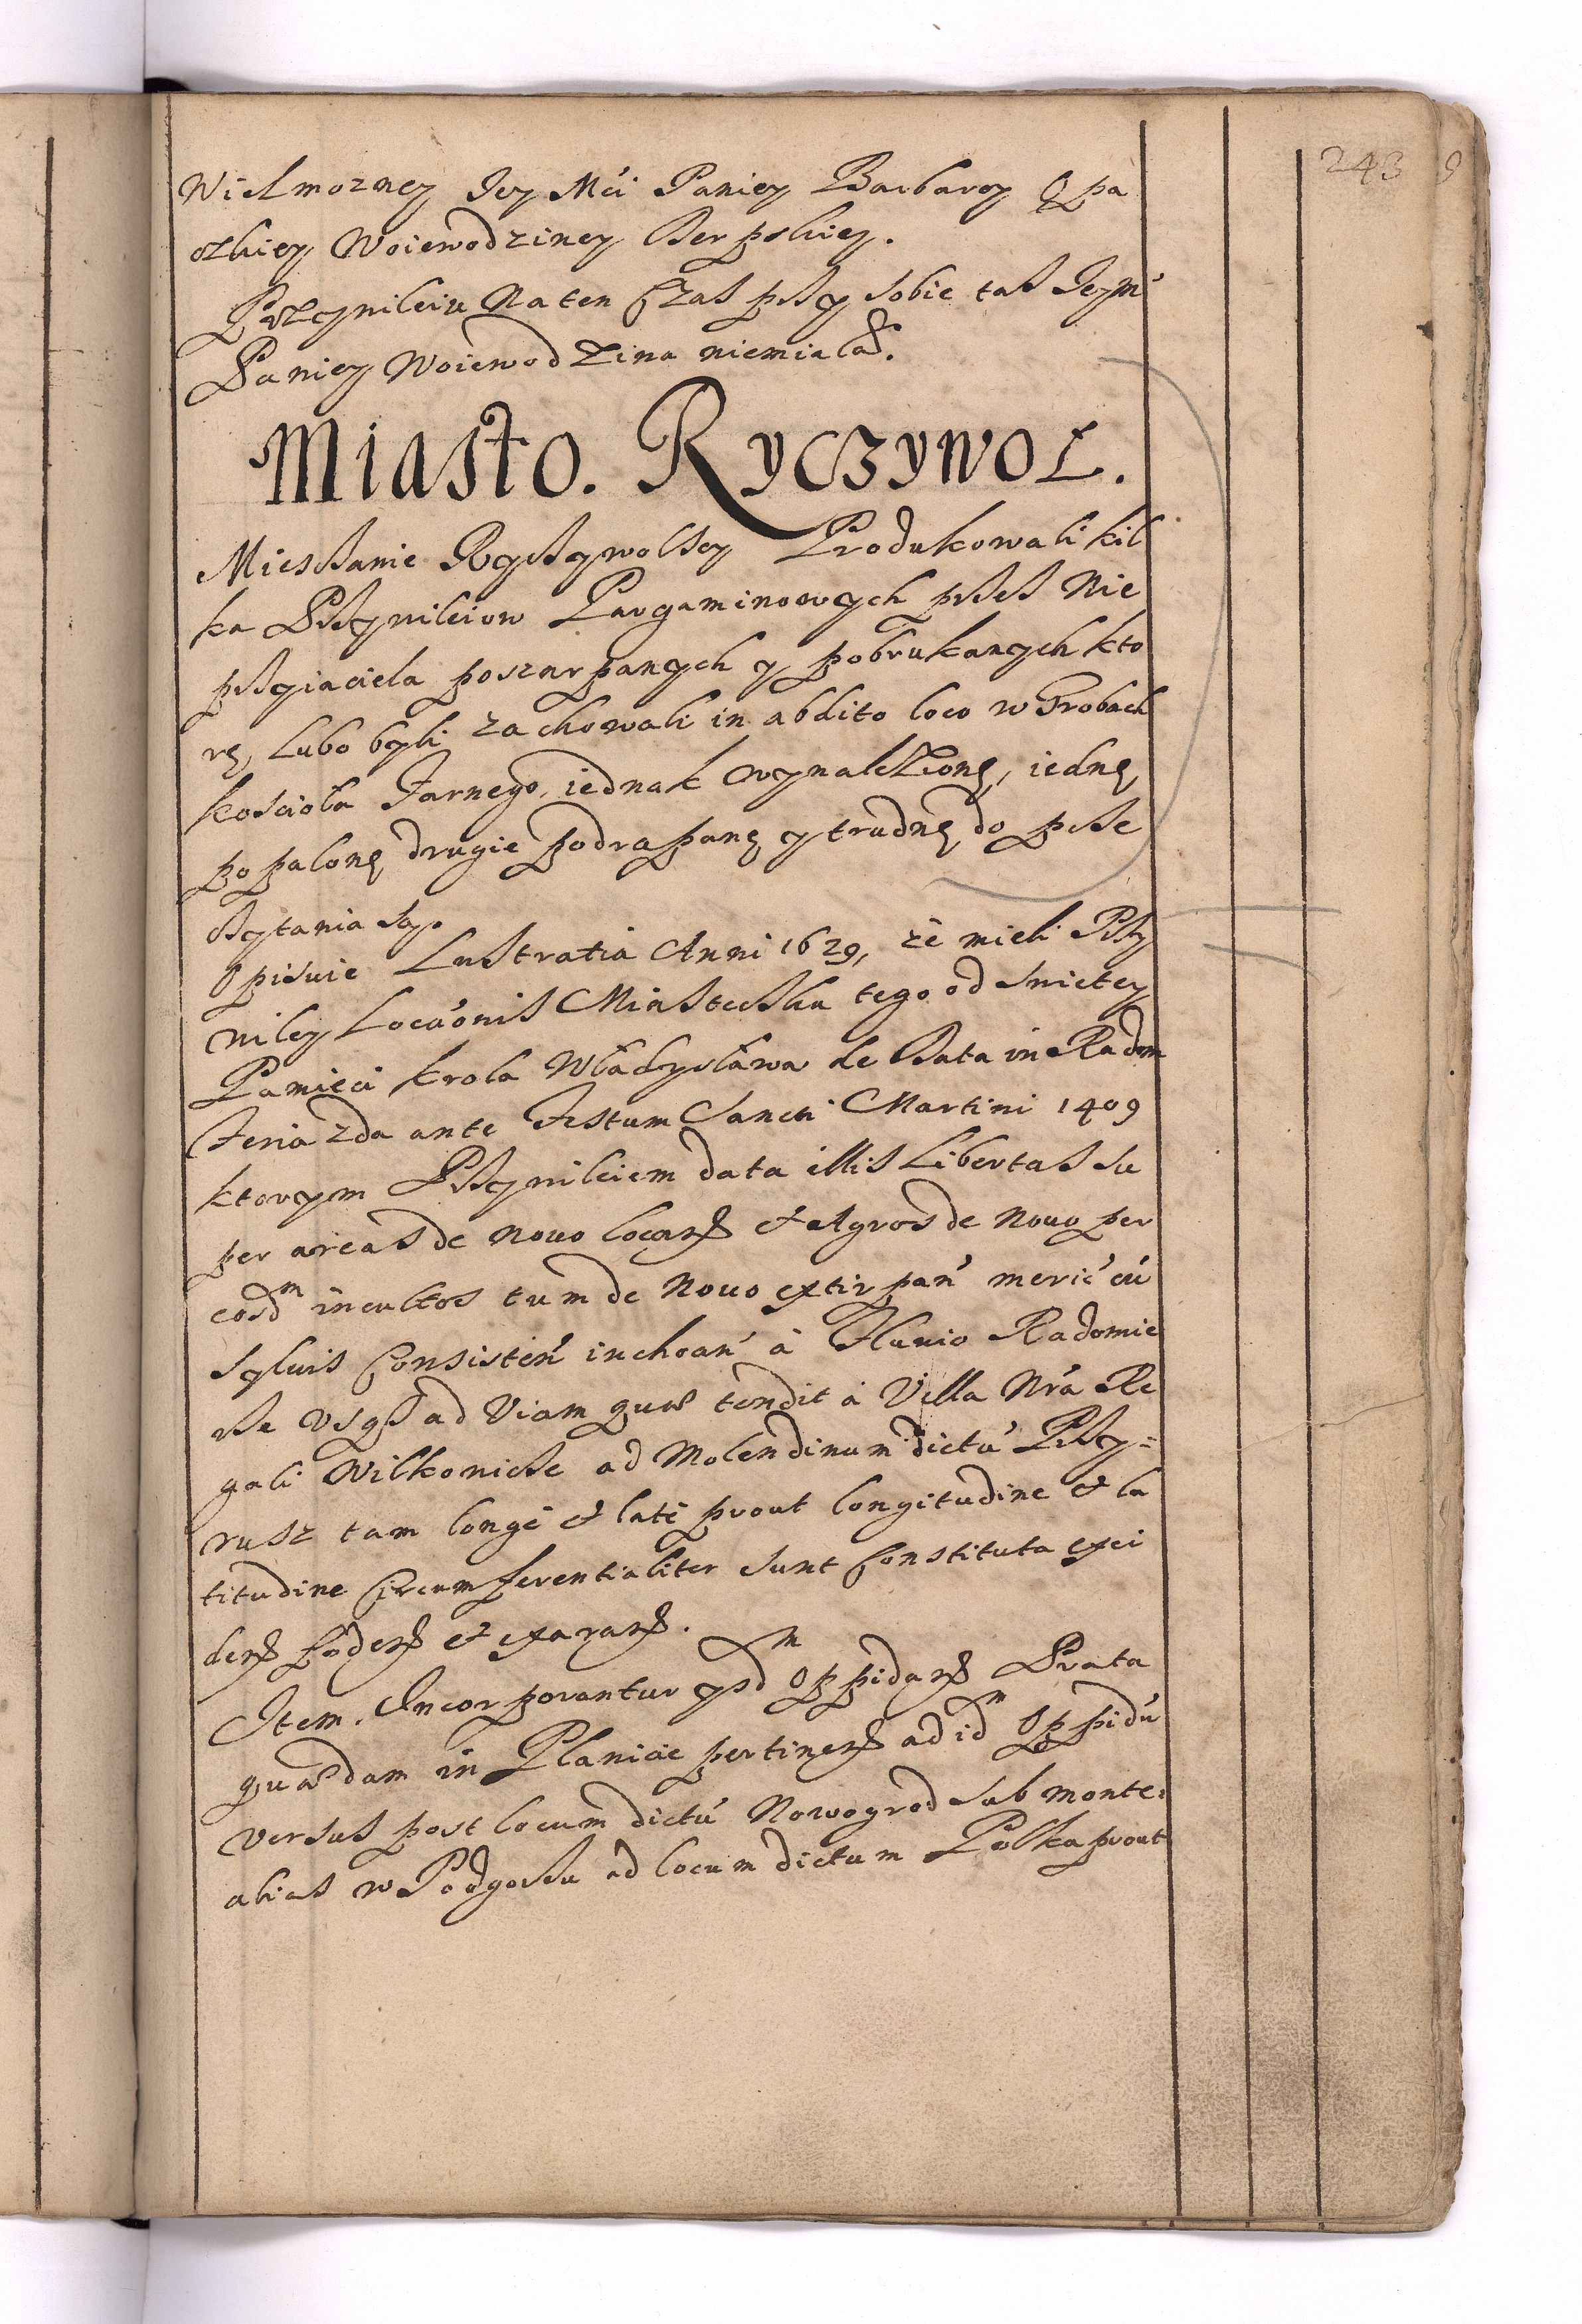 243 9
Wielmozney Jey Mći Paniey Barbary Opa
ckiey Woiewodziney Berpskiey.
Przywileiu na ten Czas przy sobie taż Jeym̃
Paniey Woiewodzina niemiała.
Miasto. Ryczywoł.
Mieszczanie Ryczywolscy Produkowali kil
ka Przywileiow Pargaminowych przez Nie
przyiaciela poszarpanych y pobrukanych kto
rę, Lubo byli zachowali in abdito loco w Grobach
kościoła Farnego, iednak wynalezionę, iednę
popalonę drugie podrapanę y trudnę do prze
czytania są.
Opisuie Lustratia Anni 1629, że mieli Przy
wiley Locaõnis Miasteczku tego od swietey
Pamięci krola Władysława de Data in Radom
Feria 2da ante Festum Sancti Martini 1409
ktorym Przywileiem data illis Libertas su
per areas de Nouo locarȝ et Agros de Nouo per
eosdm incultos tum de Nouo extirpań meric̃ cũ
syluis Consisteń inchoań à Fluuio Radomie
rze Vsqȝ ad Viam quæ tendit à Villa Nrã Re
gali Wilkowicze ad Molendinum dictũ Przy=
rusz tam longè et latè prout longitudine et la
titudine Circumferentialiter sunt Constituta exci
derȝ foderȝ et exararȝ.
Item. Incorporantur ysdm Oppidarȝ Prata
quædam in Planicie pertinerȝ ad idm Oppidũ
versus post locum dictũ Nowogrod sub monte
alias w Podgorzu ad locum dictum Polka prout